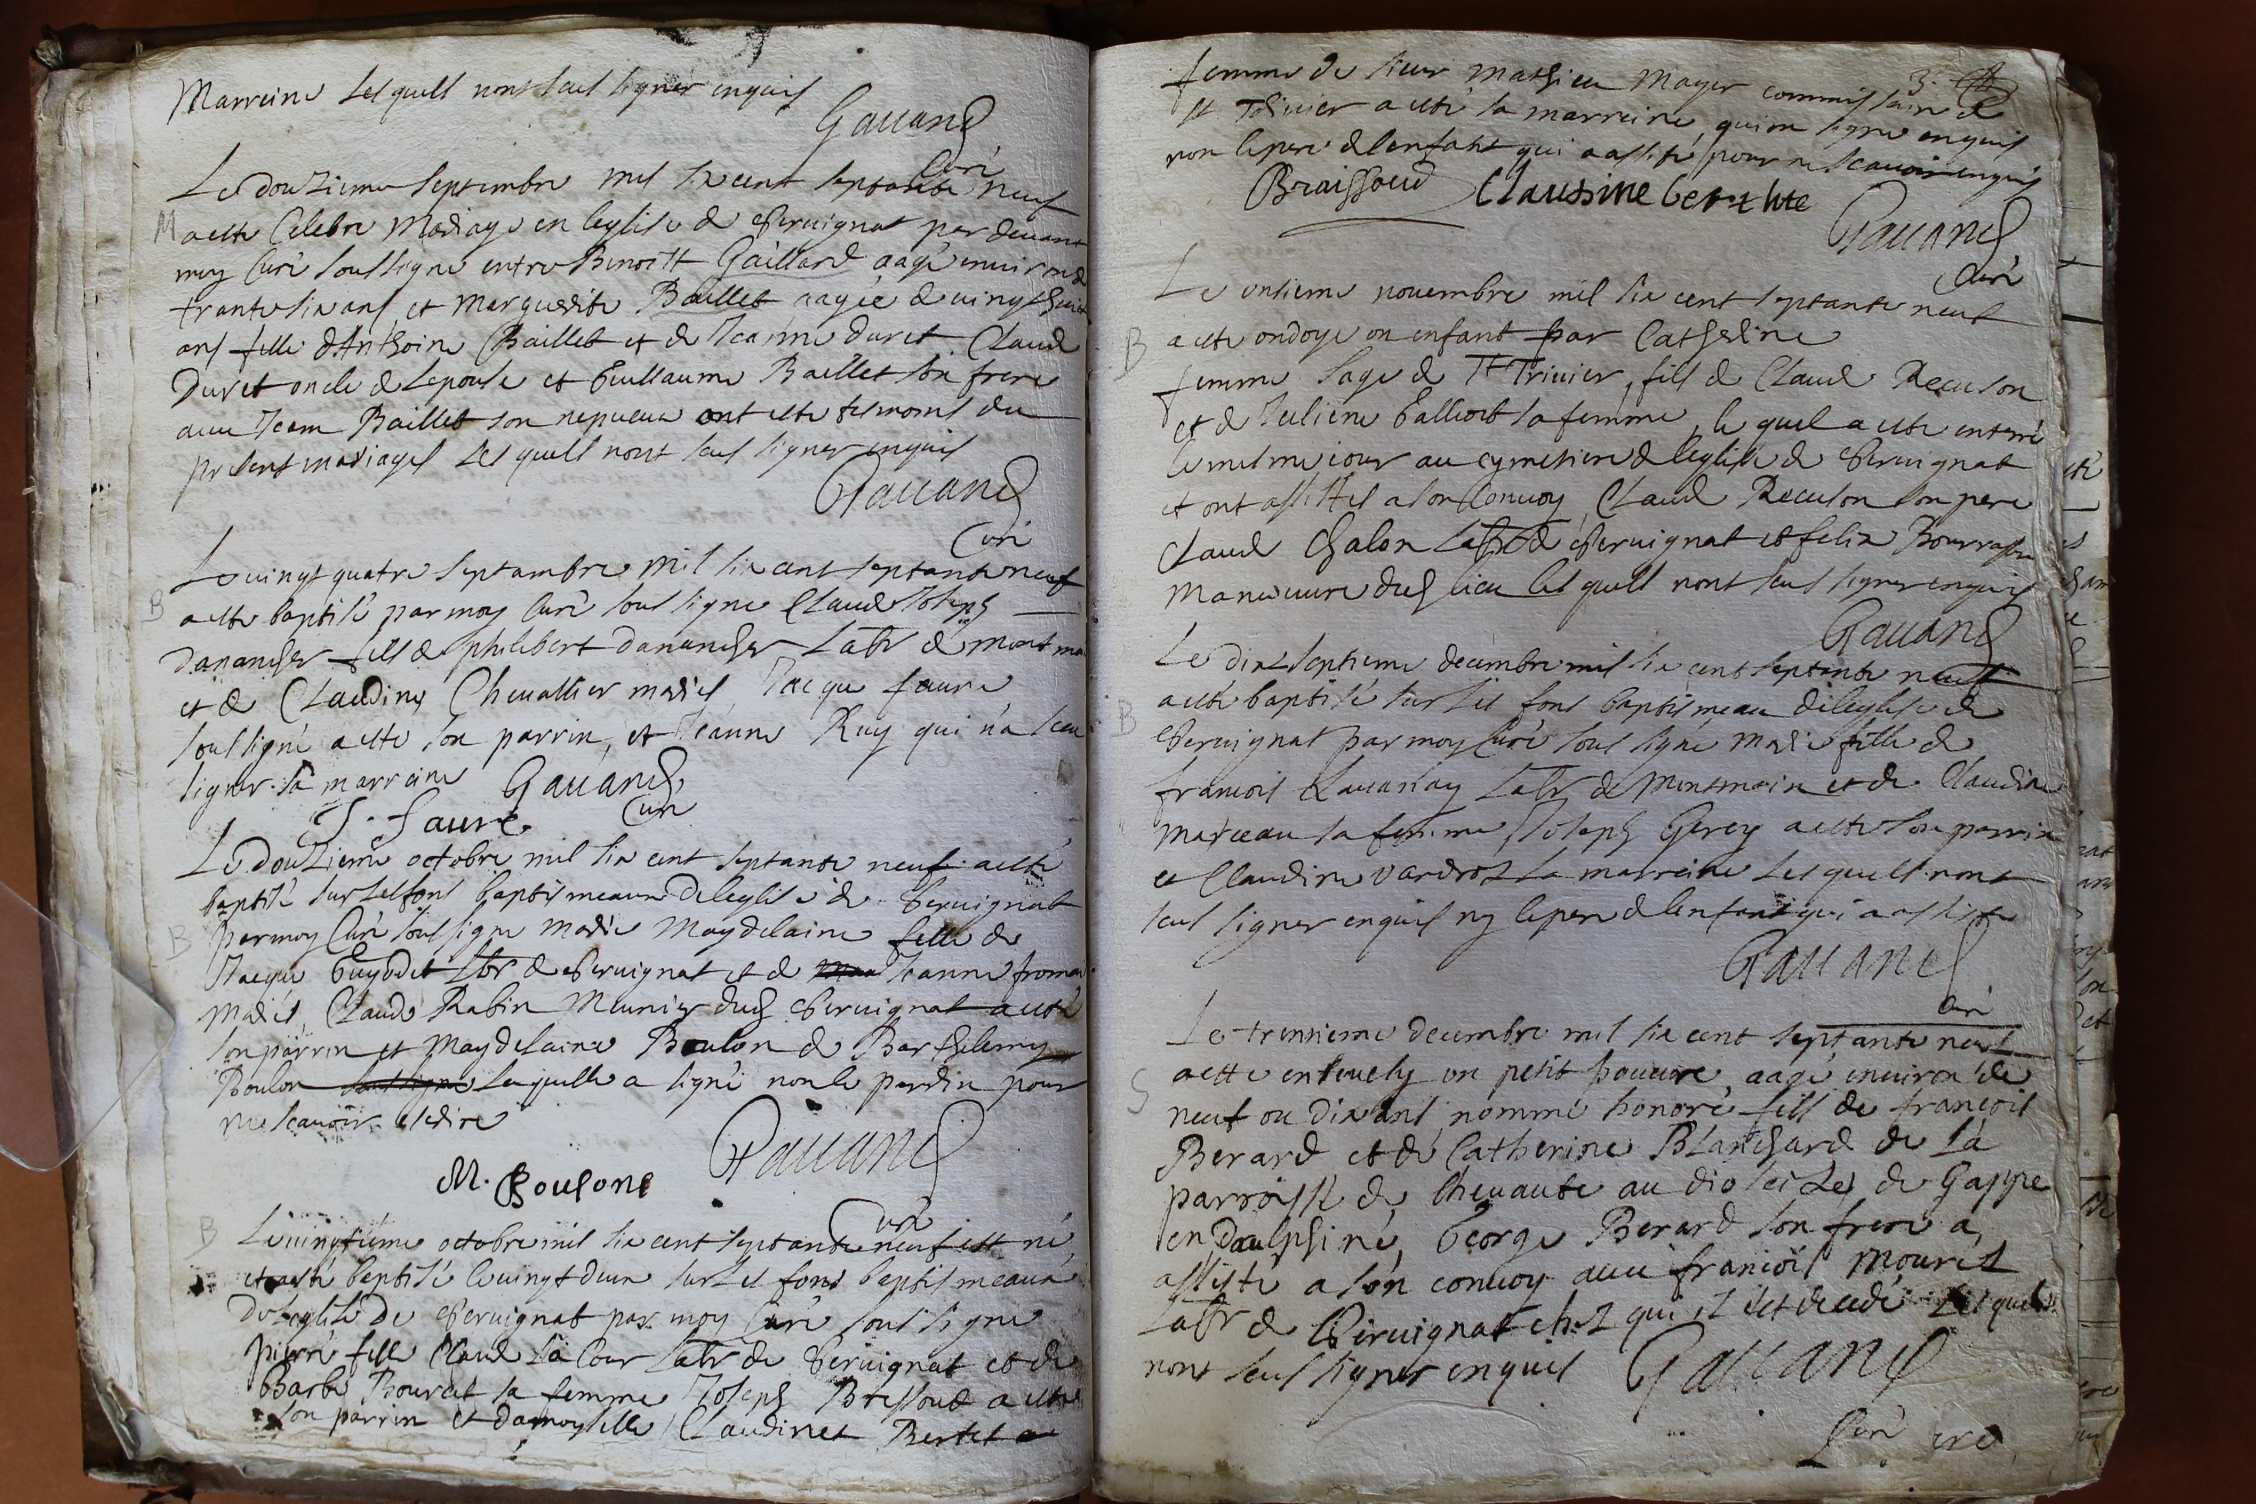 Marreine Lesquels nont sceu signer enquis
Gavand
Curé
Le douzieme septembre mil six cent septante neuf
M
a esté Celebré Mariage en leglise de Cervignat par devant
moy Curé soussigné entre Benoitt Gaillard aagé environ de
trante six ans et Marguerite Baillet aagée de vingt huit
ans fille d'Anthoine Baillet et de Jeanne duret Claude
Duret oncle de Lepouse et Guillaume Baillet son frere
avec Jean Baillet son nepveux ont esté tesmoins du
present mariages Lesquels nont sceu signer enquis
Gavand
Curé
Le vingt quatre septambre mil six cent septante neuf
B
a esté baptisé par moy Curé soussigné Claude Joseph
Dananches fils de philibert dananches Labr de montmain
et de Claudine Chevallier mariés Jacque faure
soussigné a esté son parrin, et Jeanne Ruy qui n'a sceu
signer sa marreine Gavand
Curé
J. faure
Le douzieme octobre mil six cent septante neuf a esté
baptisé sur les fons baptismeaux de leglise de Cervignat
B
par moy Curé soussigné Marie Magdelaine fille de
Jacque Guyodet Lbr de Cervignat et de Jeanne froman
mariés, Claude Rabin Meunier dud Cervignat a esté
son parrin et Magdelaine Boulon de Barthelemy
Boulon soussigné Laquelle a signé non le pardin pour
ne scavoir
M. Boulone
Gavand
Curé
B
Le vingtieme octobre mil six cent septante neuf est né
et a esté baptisé le vingt deux sur les fons baptismeaux
de leglise de Cervignat par moy Curé soussigné
pierre fille Claude La Cour Labr de Cervignat et de
Barbe Bourcet sa femme Joseph Bressoud a esté
son parrin et damoyselle Claudinet Bertet
femme de sieur Mathieu Mayer commissaire de
3.
St Trivier a esté sa marreine, qui on signé enquis
non le pere de l'enfant qui a assisté pour ne scavoir enquis
Braissoud Claudine berthte
Gavand
Curé
Le onsieme novembre mil six cent septante neuf
B
a esté ondoyé on enfant par Catherine
femme sage de St Trivier, fils de Claude Reculon
et de Juliene Galliot sa femme, le quel a esté enterré
le mesme jour au cymetiere de leglise de Cervignat
et ont assistés a son Convoy Claude Reculon son pere
Claude Chalon Labr de Cervignat et felix Bourrasson
Manoeuvre dud lieu lesquels nont sceu signer enquis
Gavand
Le dix septieme decembre mil six cent septante neuf
B
a esté baptisé sur les fons baptismeau de leglise de
Cervignat par moy Curé soussigné Marie fille de
francois Lavanay Labr de Montmain et de Claudine
Marceau sa femme, Joseph Gerey a esté son parrin
et Claudine vardroz La marreine Lesquels nont
sceu signer enquis ny le pere de lenfant qui a assisté
Gavand
Curé
Le trensieme decembre mil six cent septante neuf
S
a esté ensevely on petit pauvre, aagé environ de
neuf ou dix ans nommé honoré fils de francois
Berard et de Catherine Blanchard de La
parroisse de Chevaute au dioseizes de Gappe
en daulphiné, George Berard son frere a
assisté a son convoy avec francois Mourez
Labr de Cervignat chez qui il est decedé Lesquels
nont sceu signer enquis Gavand
Curé